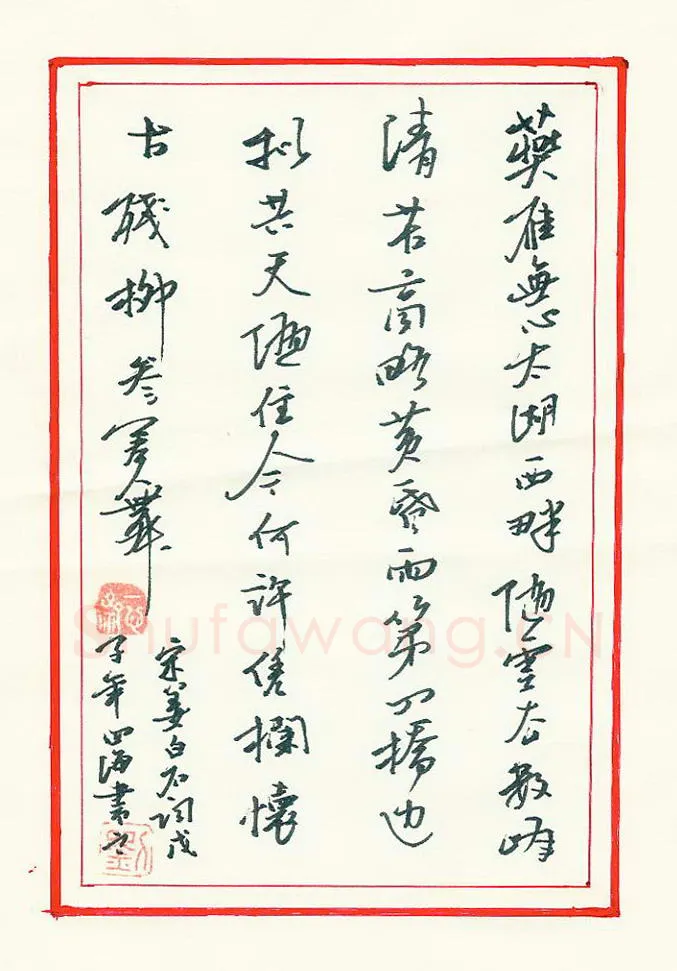 燕雁無心太湖西畔随雲去數峰
清苦商略黄昏雨第四橋边
拟共天随住今何許凭欄懷
古殘柳参差舞
宋姜白石詞戊
子年四海書之
劉
Shufawang.CN